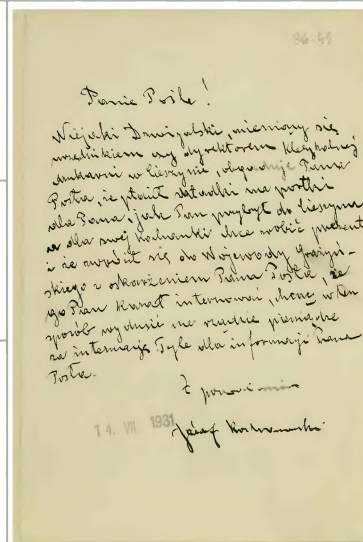 86-49
Panie Pośle!
Niejaki Dmigalski, mieniący się
urzędnikiem czy dyrektorem klerykalnej
drukarni w Cieszynie, obgaduje Pana
Posła, że płacił składki na portki
dla Pana, jak Pan przybył do Cieszyna
a dla swej kochanki chce robić prezent
i że zwrócił się do Wojewody Grażyń-
skiego z oskarżeniem Pana Posła, że
go Pan kazał internować, chcąc w ten
sposób wydusić na rządzie pieniądze
za internację. Tyle dla informacji Pana
Posła.
Z poważaniem
14. VII. 1931
Józef